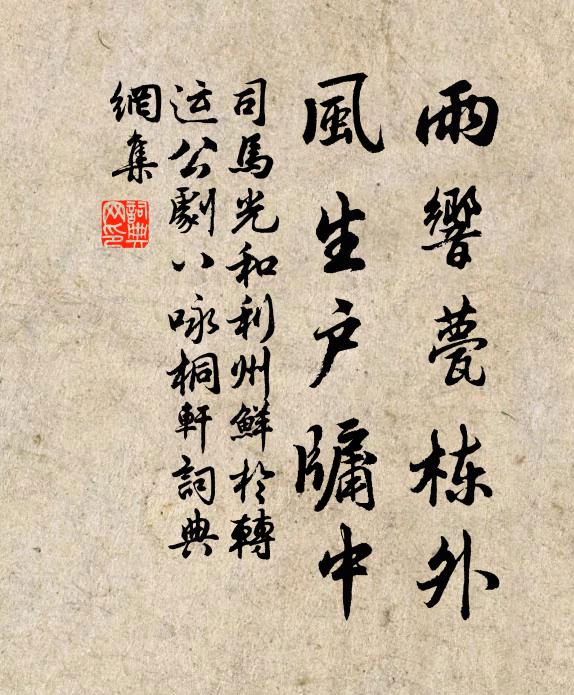 雨響甍栋外
風生户牖中
司馬光和利州鮮於轉
运公劇八咏桐軒詞典
網集
詞典
网印